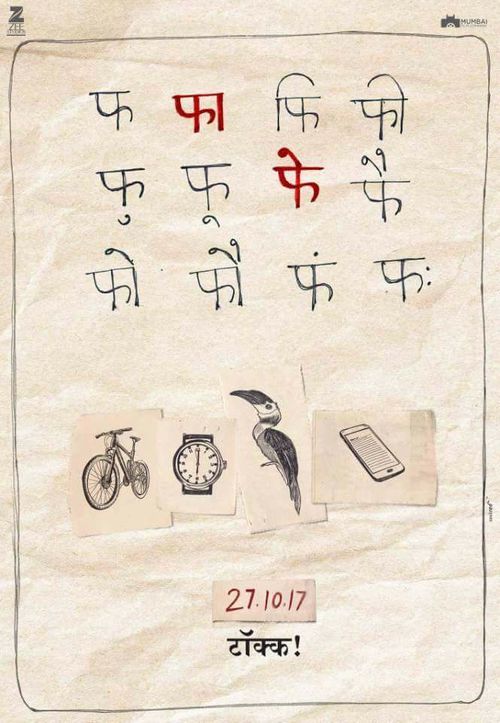 Z
ZEE
STUDIOS
MUMBAI
फ फा फि फी
फु फू फे फै
फो फौ फं फः
27.10.17
टॉक्क!